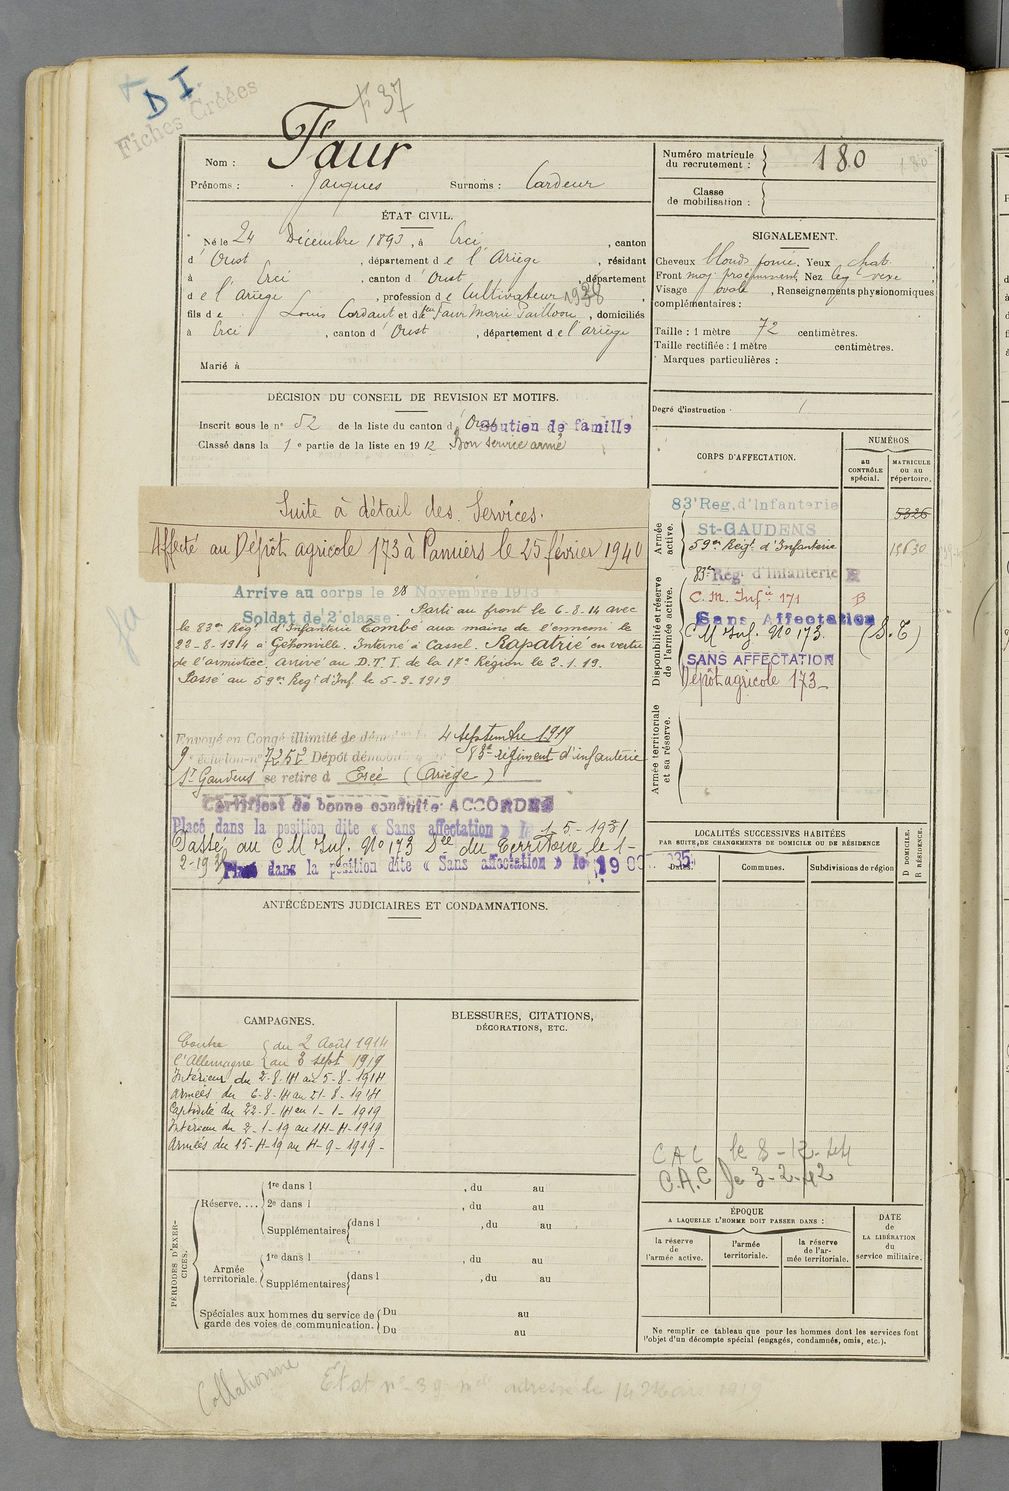 D I.
Fiches Créées
f 37
Nom : Faur
Prénoms : Jacques Surnoms : Cardeur
Numéro matricule du recrutement : 180
180
Classe de mobilisation :
ÉTAT CIVIL.
Né le 24 Décembre 1893, à Ercé, canton
d'Oust, département de l'Ariège, résidant
à Ercé, canton d'Oust, département
de l'Ariège, profession de Cultivateur 1938
fils de Louis Cardaut et de feu Faur Marie, domiciliés
à Ercé, canton d'Oust, département de l'Ariège
Marié à
SIGNALEMENT.
Cheveux blonds foncé, Yeux chat.,
Front moy. Nez leg.
Visage ovale, Renseignements physionomiques
complémentaires :
Taille : 1 mètre 72 centimètres.
Taille rectifiée : 1 mètre centimètres.
Marques particulières :
Degré d'instruction
DÉCISION DU CONSEIL DE REVISION ET MOTIFS.
Inscrit sous le n° 52 de la liste du canton d'Oust Soutien de famille
Classé dans la 1e partie de la liste en 1912 Bon service armé
Suite à détail des Services.
Affecté au Dépôt agricole 173 à Pamiers le 25 février 1940
Arrivé au corps le 28 Novembre 1913
Soldat de 2e classe Parti au front le 6-8-14 avec
le 83me Régt d'Infanterie Tombé aux mains de l'ennemi le
22-8-1914 à Géhonville. Interné à Cassel. Rapatrié en vertu
de l'armistice, arrivé au D.T.I. de la 17e Région le 2-1-19.
Passé au 59me Regt d'Inf. le 5-2-1919
Envoyé en Congé illimité de démob 4 Septembre 1919
9e échelon n° 7252 Dépôt démob 83e régiment d'infanterie
St Gaudens se retire à Ercé (Ariège)
Certificat de bonne conduite ACCORDÉ
Placé dans la position dite « Sans affectation » le 1-5-1931
Passé au C M Inf. No 173 Dce du Territoire le 1-
2-193
Placé dans la position dite « Sans affectation » le 19
ANTÉCÉDENTS JUDICIAIRES ET CONDAMNATIONS.
CORPS D'AFFECTATION.
NUMÉROS
au CONTRÔLE spécial.
MATRICULE ou au répertoire.
Armée active.
83e Reg. d'Infanterie
5326
St-GAUDENS
59me Régt d'Infanterie 13630
Disponibilité et réserve de l'armée active.
83me Régt d'Infanterie
C. M. Infie 171 B
Sans Affectation
C M Inf. No 173. (S.T)
SANS AFFECTATION
Dépôt agricole 173
Armée territoriale et sa réserve.
LOCALITÉS SUCCESSIVES HABITÉES
PAR SUITE DE CHANGEMENTS DE DOMICILE OU DE RÉSIDENCE
Dates. Communes. Subdivisions de région
D DOMICILE. R RÉSIDENCE.
CAMPAGNES.
Contre du 2 Août 1914
l'Allemagne au 3 sept 1919
Intérieur du 2-8-14 au 5-8-1914
Armées du 6-8-14 au 21-8-1914
Captivité du 22-8-14 au 1-1-1919
Intérieur du 2-1-19 au 14-4-1919
Armées du 15-4-19 au 4-9-1919-
BLESSURES, CITATIONS,
DÉCORATIONS, ETC.
C A C le 8-12-44
C.A.C Je 3-2-42
PÉRIODES D'EXERCICES.
Réserve.... 1re dans l , du au
2e dans l , du au
Supplémentaires dans l , du au
Armée territoriale. 1re dans l , du au
Supplémentaires dans l , du au
Spéciales aux hommes du service de garde des voies de communication. Du au
Du au
ÉPOQUE
A LAQUELLE L'HOMME DOIT PASSER DANS :
la réserve de l'armée active.
l'armée territoriale.
la réserve de l'armée territoriale.
DATE de LA LIBÉRATION du service militaire.
Ne remplir ce tableau que pour les hommes dont les services font
l'objet d'un décompte spécial (engagés, condamnés, omis, etc.).
Collationné
État n° 39 adressé le 14 Mars 1919